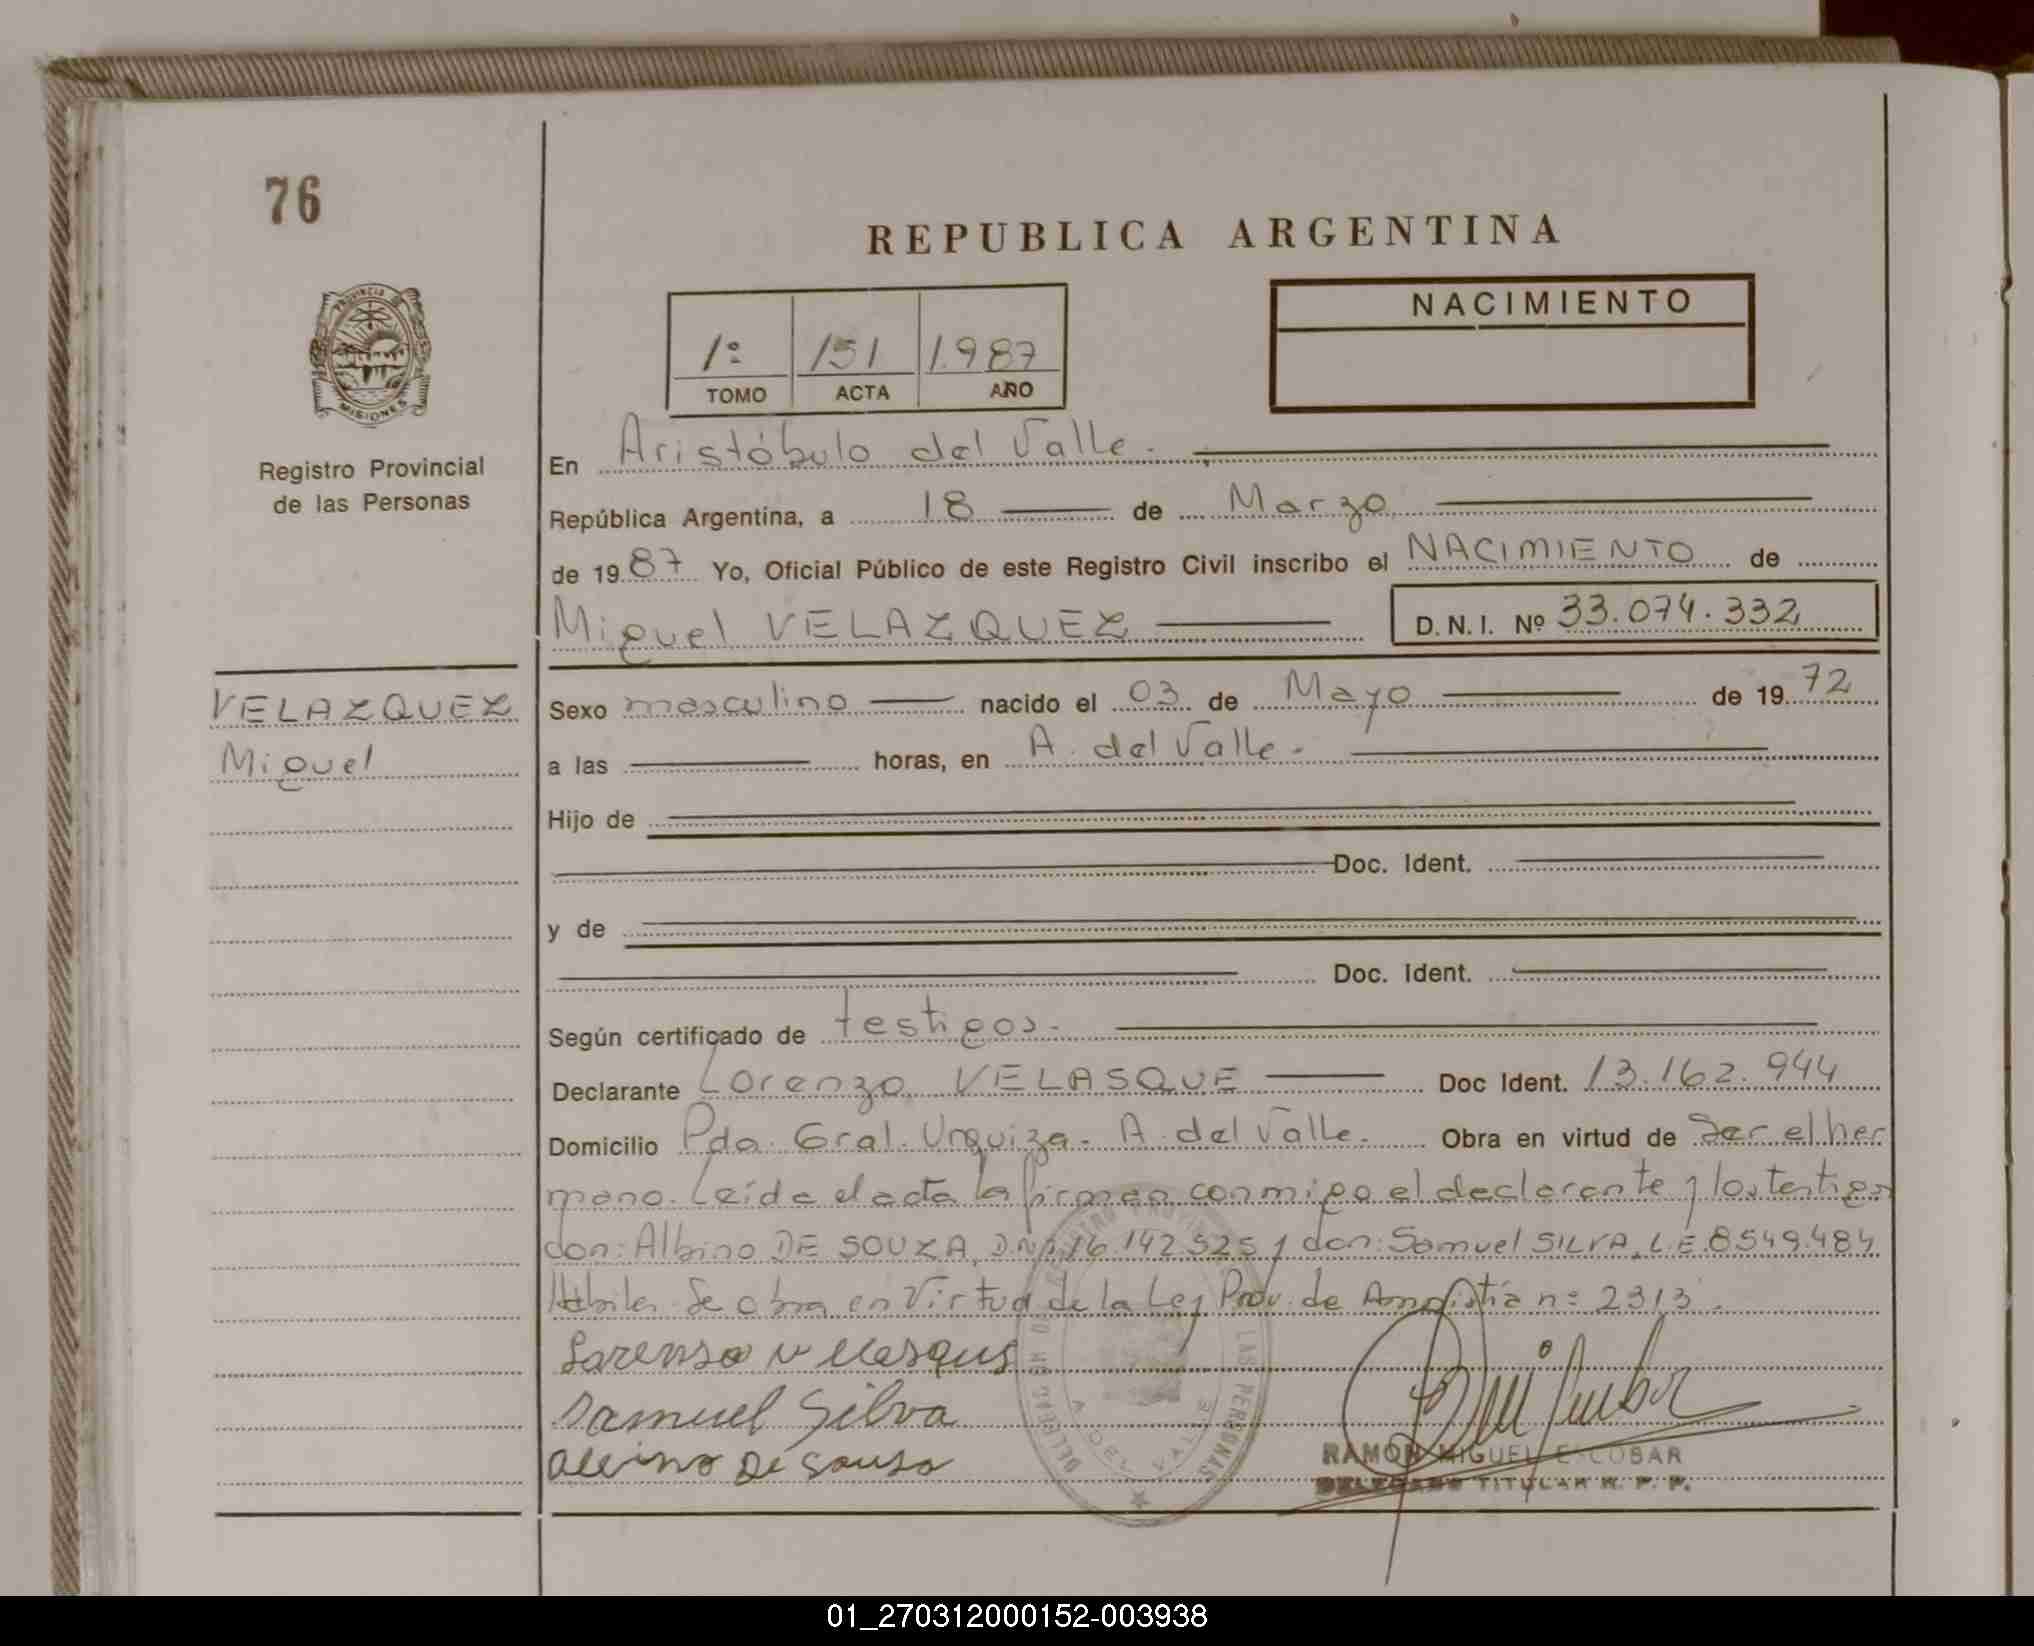 76
PROVINCIA DE
MISIONES
Registro Provincial
de las Personas
REPUBLICA ARGENTINA
1º 151 1.987
TOMO ACTA AÑO
NACIMIENTO
En Aristóbulo del Valle.
República Argentina, a 18 de Marzo
de 1987 Yo, Oficial Público de este Registro Civil inscribo el NACIMIENTO de
Miguel VELAZQUEZ D.N.I. Nº 33.074.332
VELAZQUEZ
Miguel
Sexo masculino nacido el 03 de Mayo de 1972
a las horas, en A. del Valle.
Hijo de
Doc. Ident.
y de
Doc. Ident.
Según certificado de testigos.
Declarante Lorenzo VELASQUE Doc Ident. 13.162.944
Domicilio Pdo. Gral. Urquiza. A. del Valle. Obra en virtud de Ser el her
mano. Leída el acta la firman conmigo el declarante y los testigos
don: Albino DE SOUZA, D.N.I. 16.142.525 y don: Samuel SILVA, L.E. 8549.484
Hábiles. Se obra en Virtud de la Ley Prov. de Amnistía nº 2313.
Samuel Silva
RAMON MIGUEL ESCOBAR
DELEGADO TITULAR R. P. P.
01_270312000152-003938